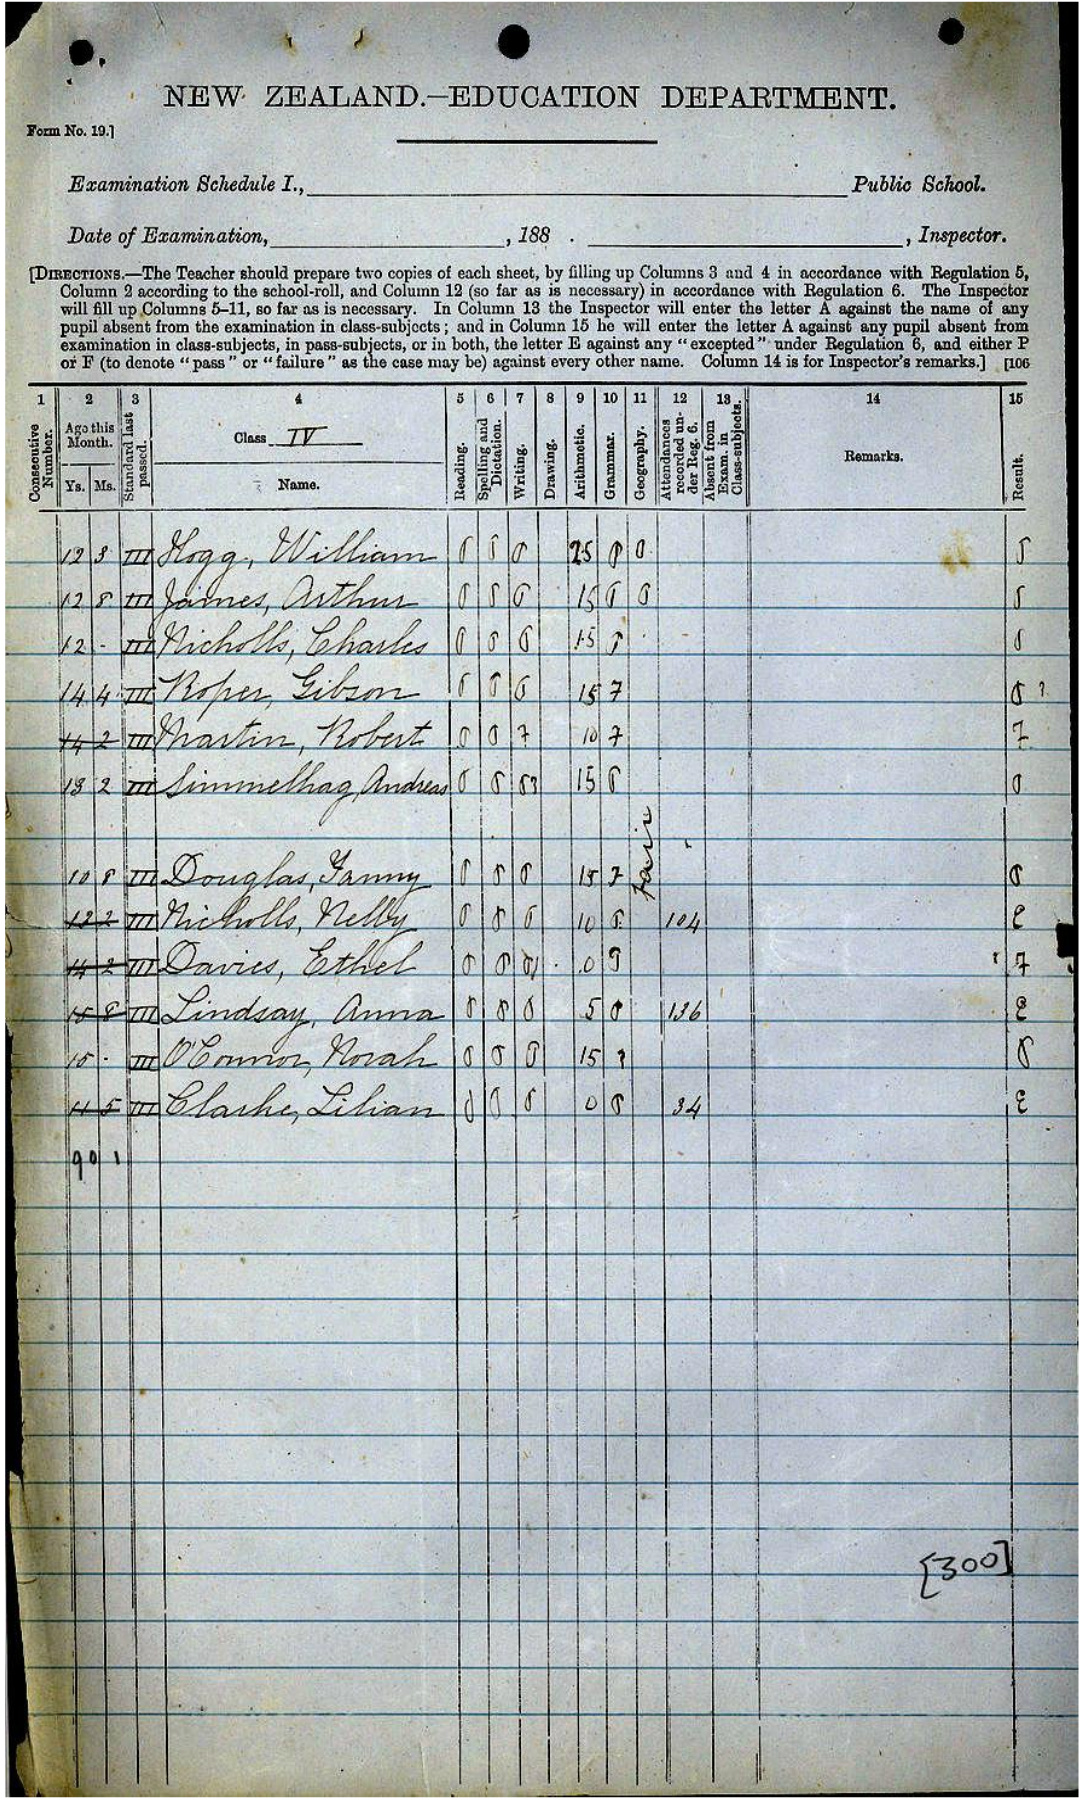 NEW ZEALAND.—EDUCATION DEPARTMENT.
Form No. 19.]
Examination Schedule I., Public School.
Date of Examination, , 188 . , Inspector.
[DIRECTIONS.—The Teacher should prepare two copies of each sheet, by filling up Columns 3 and 4 in accordance with Regulation 5,
Column 2 according to the school-roll, and Column 12 (so far as is necessary) in accordance with Regulation 6. The Inspector
will fill up Columns 5–11, so far as is necessary. In Column 13 the Inspector will enter the letter A against the name of any
pupil absent from the examination in class-subjects; and in Column 15 he will enter the letter A against any pupil absent from
examination in class-subjects, in pass-subjects, or in both, the letter E against any "excepted" under Regulation 6, and either P
or F (to denote "pass" or "failure" as the case may be) against every other name. Column 14 is for Inspector's remarks.] [106
1 2 3 4 5 6 7 8 9 10 11 12 13 14 15
Consecutive Number.
Age this Month.
Ys. Ms.
Standard last passed.
Class IV
Name.
Reading.
Spelling and Dictation.
Writing.
Drawing.
Arithmetic.
Grammar.
Geography.
Attendances recorded under Reg. 6.
Absent from Exam. in Class-subjects.
Remarks.
Result.
12 3 III Hogg, William 25
12 8 III James, Arthur 15
12 - III Nicholls, Charles 15
14 4 III Roper, Gibson 15
14 2 III Martin, Robert 10
13 2 III Simmelhag, Andreas 15
fair
10 8 III Douglas, Fanny 15
12 2 III Nicholls, Nelly 10 104 E
14 2 III Davies, Ethel 0
15 8 III Lindsay, Anna 5 136 E
15 - III O'Connor, Norah 15
11 5 III Clarke, Lilian 0 34 E
90 1
[300]